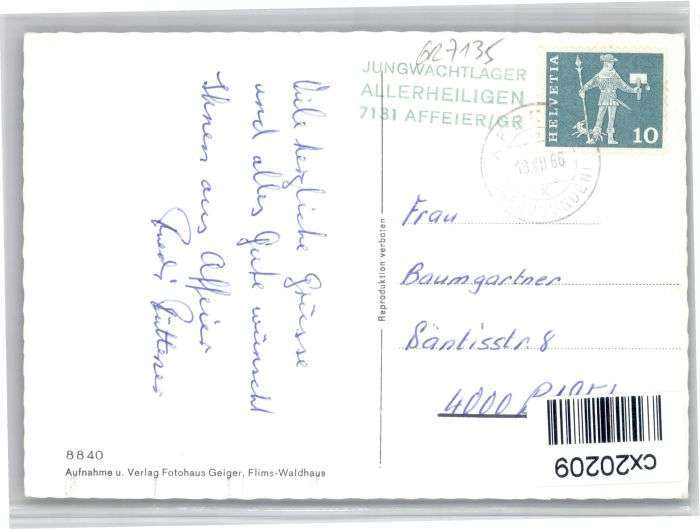 GR7135
JUNGWACHTLAGER
ALLERHEILIGEN
7131 AFFEIER/GR
HELVETIA
10
Viele herzliche Grüsse
und alles Gute wünscht
Ihnen aus Affeier
Fredi
Reproduktion verboten
Frau
Baumgartner
Säntisstr. 8
4000
cx20209
8840
Aufnahme u. Verlag Fotohaus Geiger, Flims-Waldhaus